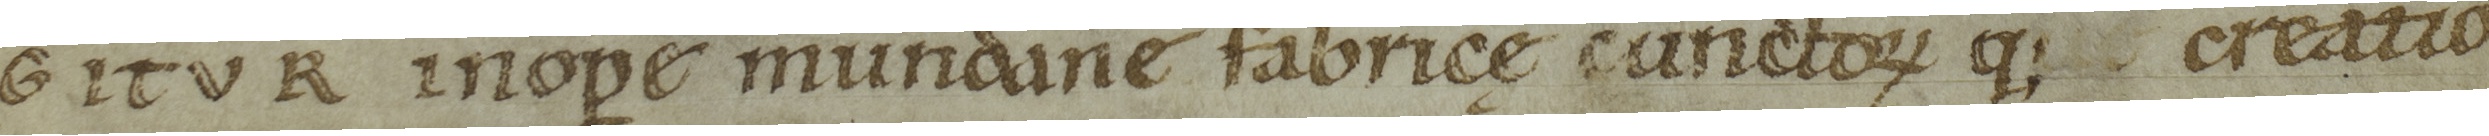 GITVR inope mundane fabricę cunctoꝝ q; creatio